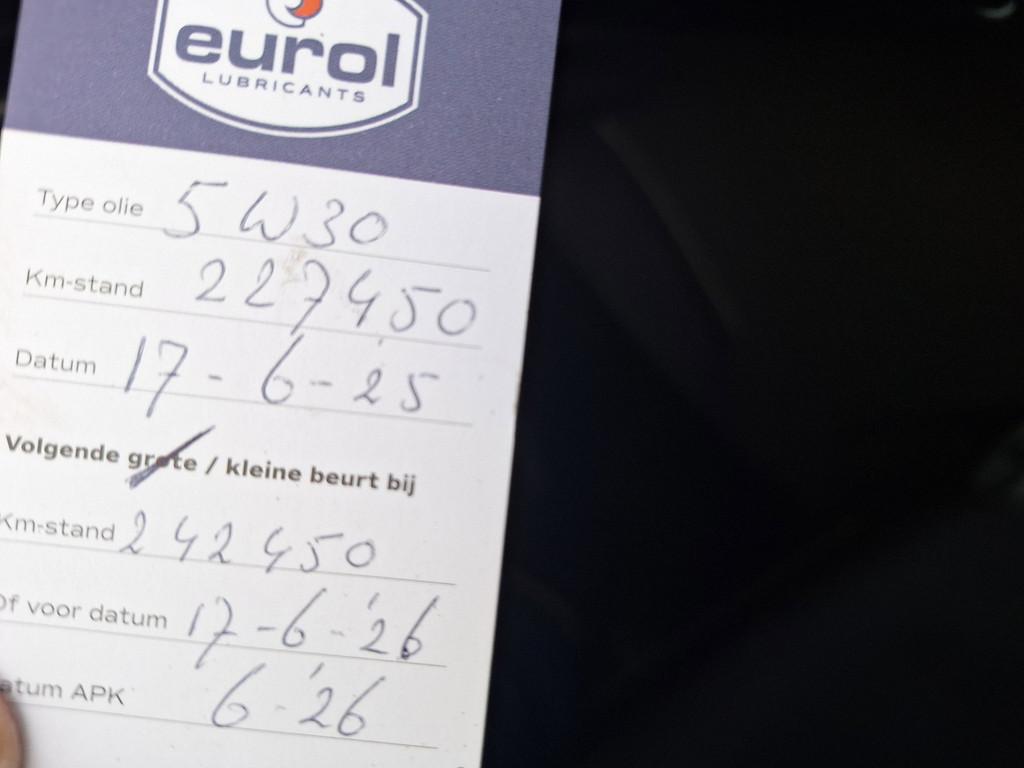 eurol
LUBRICANTS
Type olie 5W30
Km-stand 227450
Datum 17-6-'25
Volgende grote / kleine beurt bij
Km-stand 242450
Of voor datum 17-6-'26
atum APK 6-'26